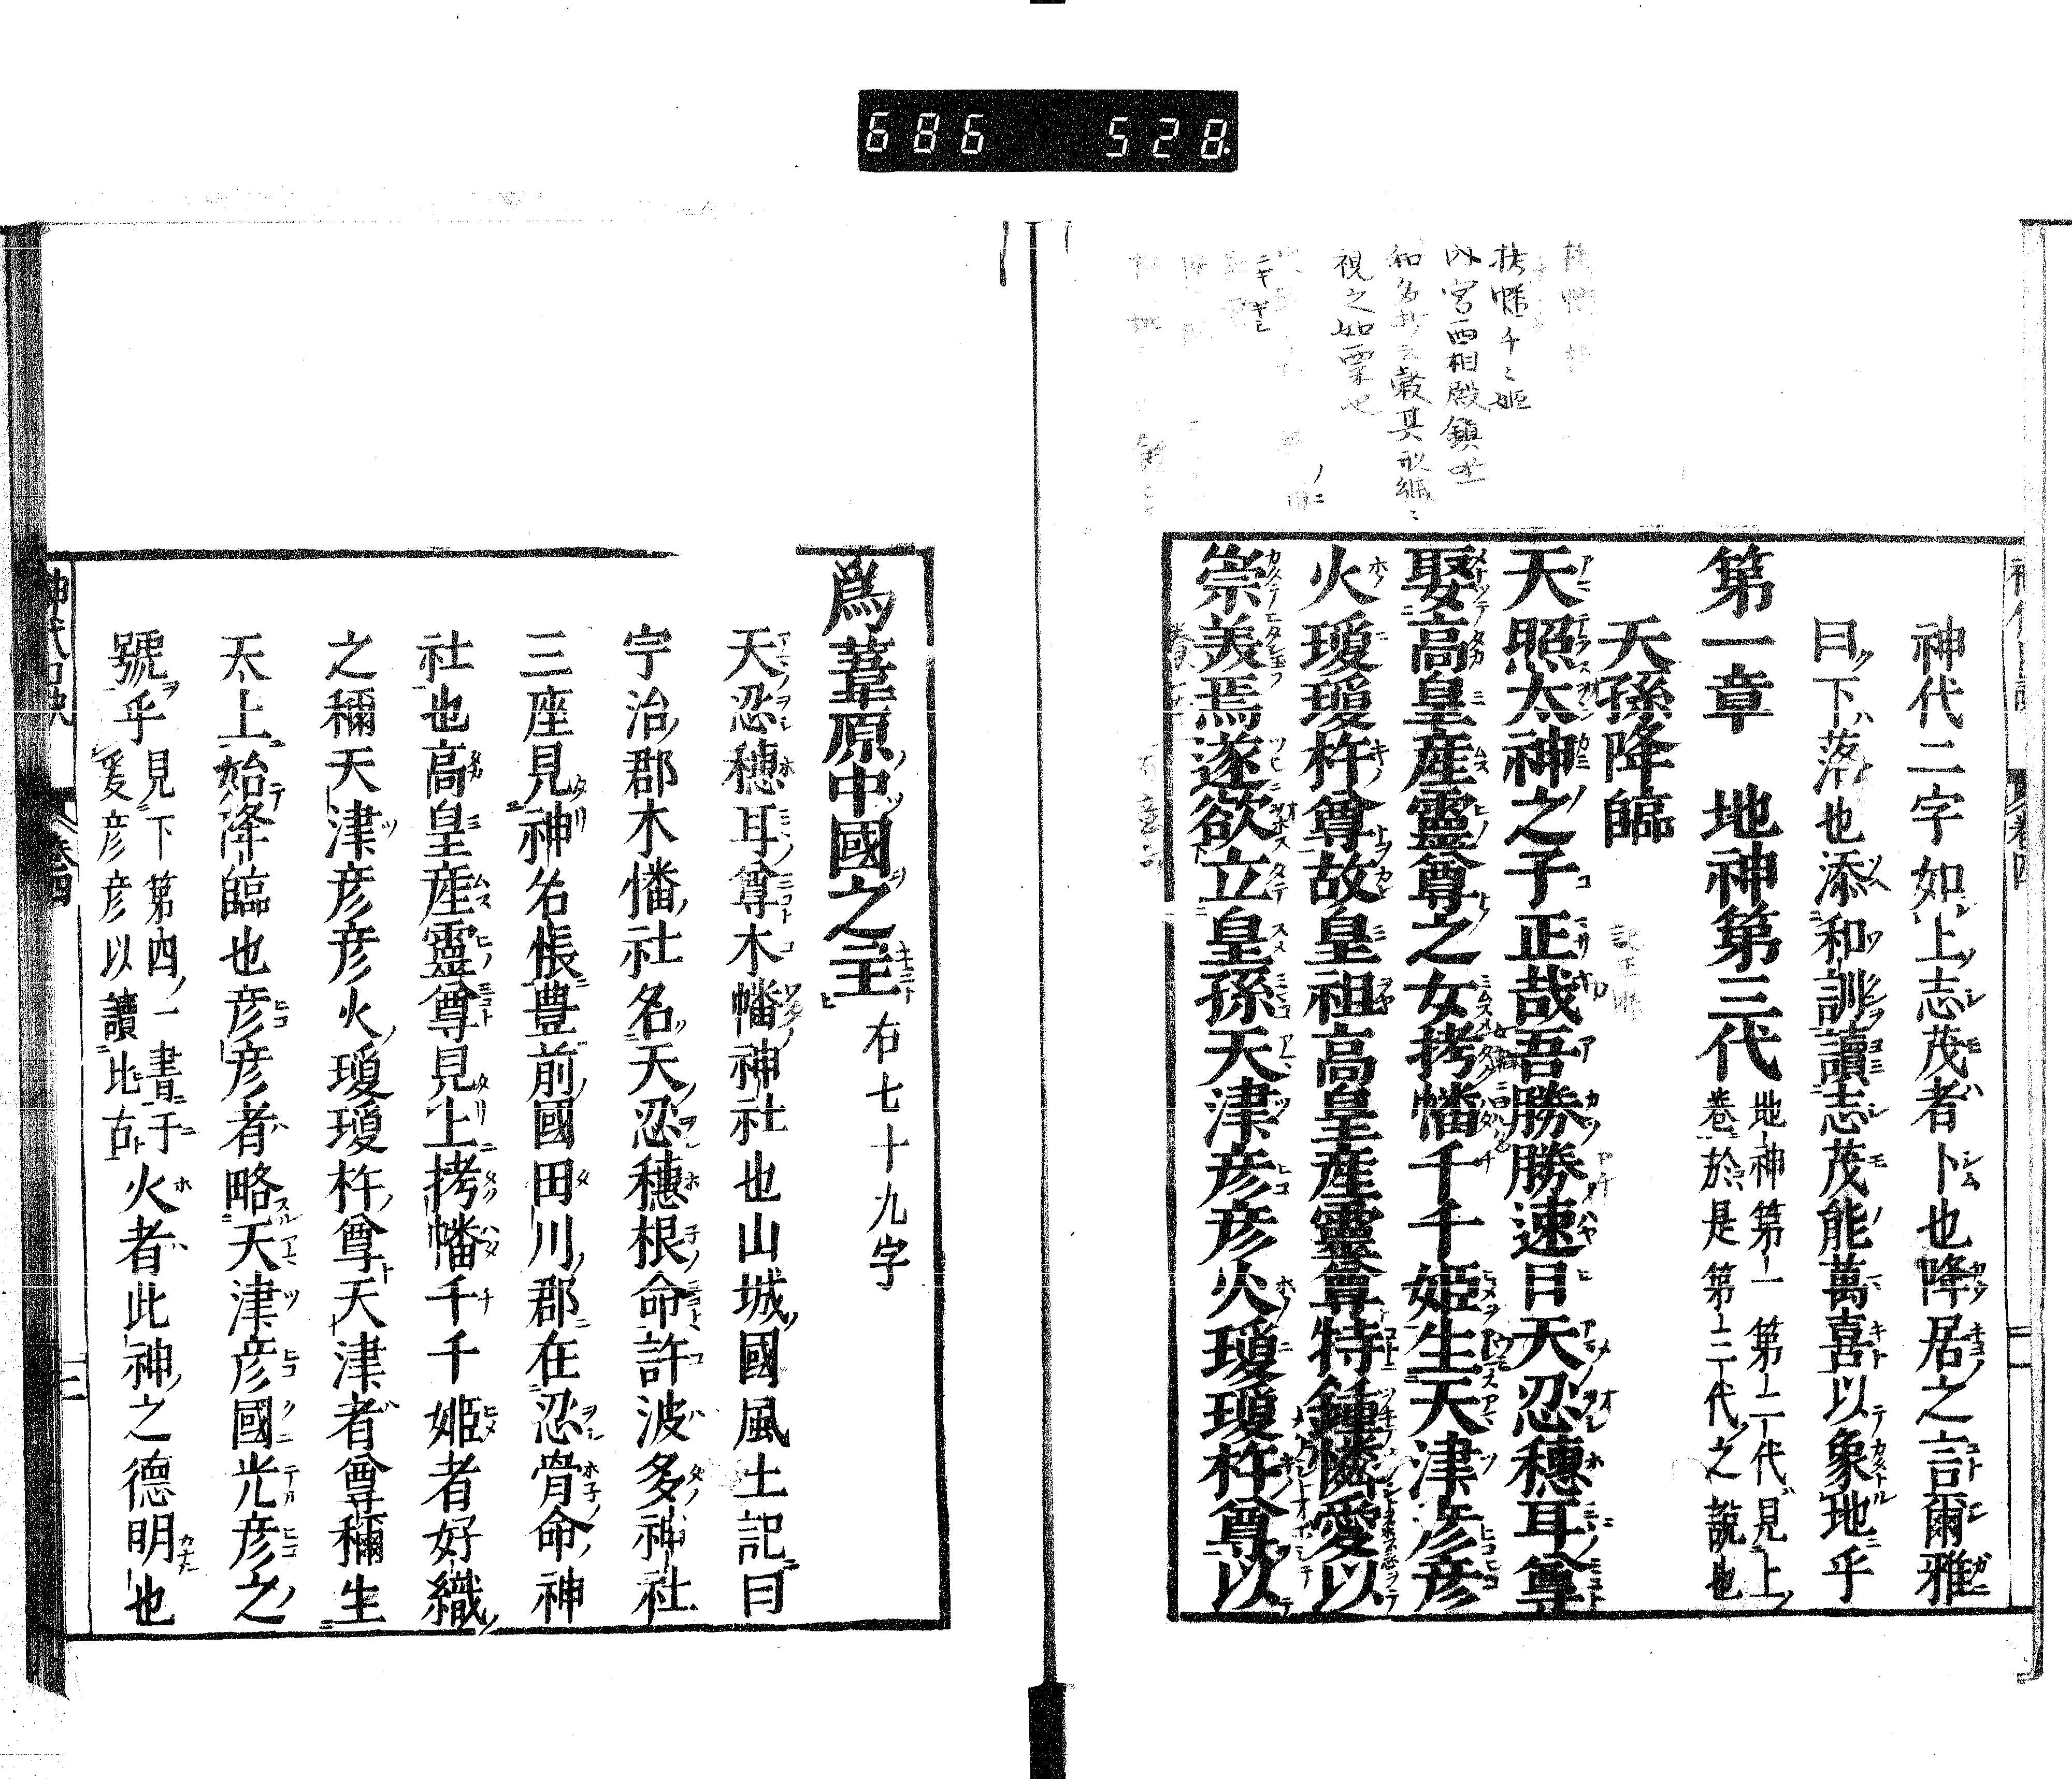 686 528
拷幡千々姫
内宮西相殿鎮坐
視之如粟也
神代二字如上志茂者卜也降居之言爾雅
曰下落也添和訓讀志茂能萬喜以象地乎
第一章 地神第三代 地神第一第二代見上
卷於是第三代之說也
天孫降臨
天照太神之子正哉吾勝勝速日天忍穗耳尊
娶高皇產靈尊之女拷幡千千姬生天津彥彥
火瓊瓊杵尊故皇祖高皇產靈尊特鍾憐愛以
崇養焉遂欲立皇孫天津彥彥火瓊瓊杵尊以
爲葦原中國之主 右七十九字
天忍穗耳尊木幡神社也山城國風土記曰
宇治郡木幡社名天忍穗根命許波多神社
三座見神名帳豊前國田川郡在忍骨命神
社也高皇產靈尊見上拷幡千千姬者好織
之稱天津彥彥火瓊瓊杵尊天津者尊稱生
太上始降臨也彥彥者略天津彥國光彥之
號乎 見下第四一書于
爰彥彥以讀比古 火者此神之德明也